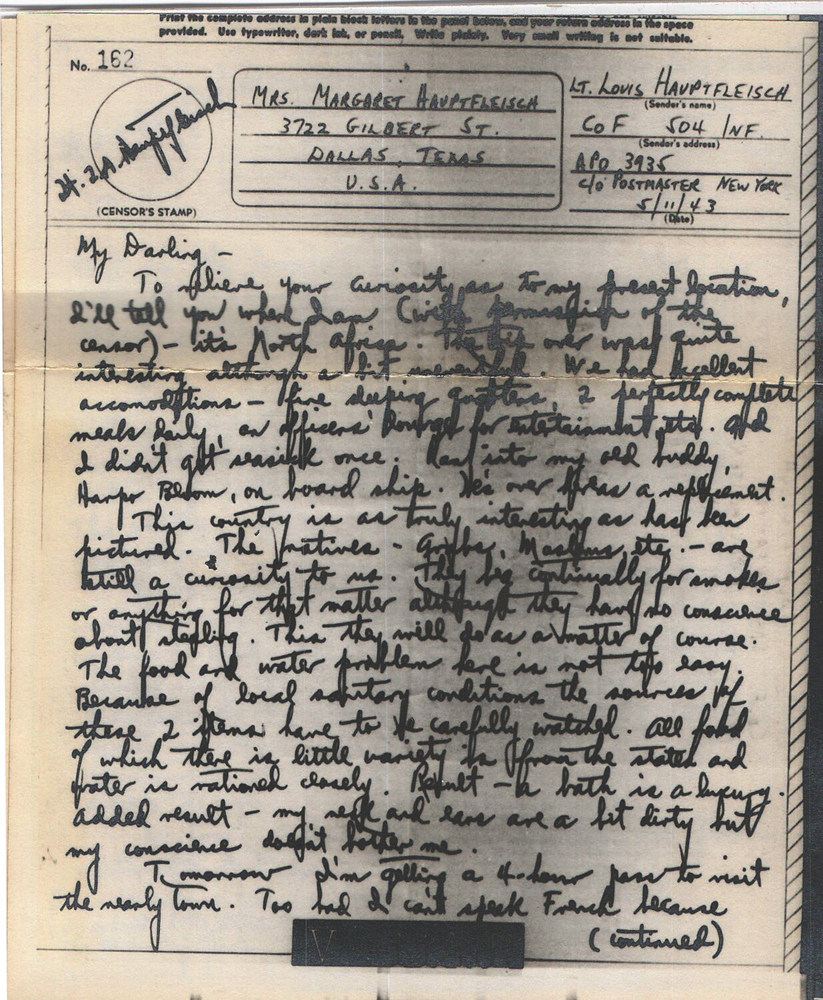 Print the complete address in plain block letters in the panel below, and your return address in the space
provided. Use typewriter, dark ink, or pencil. Write plainly. Very small writing is not suitable.
No. 162
Lt. L.A. Hauptfleisch
(CENSOR'S STAMP)
MRS. MARGARET HAUPTFLEISCH
3722 GILBERT ST.
DALLAS, TEXAS
U.S.A.
LT. LOUIS HAUPTFLEISCH
(Sender's name)
CO F 504 INF.
(Sender's address)
APO 3935
c/o POSTMASTER NEW YORK
5/11/43
(Date)
My Darling -
To relieve your curiosity as to my present location,
I'll tell you where I am (with permission of the
censor) - it's North Africa. The trip over was quite
interesting although a bit uneventful. We had excellent
accomodations - fine sleeping quarters, 2 perfectly complete
meals daily, an officers' lounge for entertainment, etc. And
I didn't get seasick once. Ran into my old buddy,
Harpo Bloom, on board ship. He's over here as a replacement.
This country is as truly interesting as has been
pictured. The natives - Arabs, Moslems, etc. - are
still a curiosity to us. They beg continually for smokes
or anything for that matter although they have no conscience
about stealing. This they will do as a matter of course.
The food and water problem here is not too easy.
Because of local sanitary conditions the sources of
these 2 items have to be carefully watched. All food
of which there is little variety is from the states and
water is rationed closely. Result - a bath is a luxury.
Added result - my neck and ears are a bit dirty but
my conscience doesn't bother me.
Tomorrow I'm getting a 4-hour pass to visit
the nearby town. Too bad I can't speak French because
(continued)
V